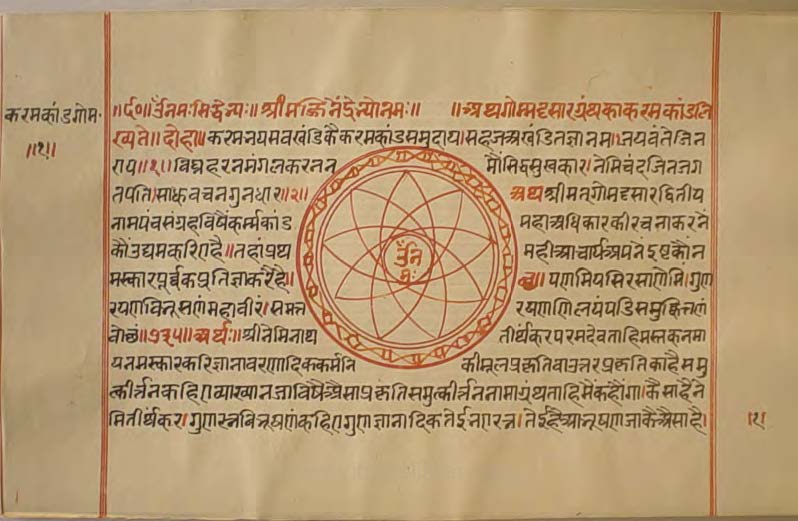 करमकांडगोम॰
॥१॥
॥र्द०॥ उँनमः सिद्धेभ्यः॥ श्रीमज्जिनेंद्रेभ्योनमः॥ ॥अथगोम्मट्टसारग्रंथकाकरमकांडलि
ख्यते॥ दोहा॥ करमनयमवखंडिकैकरमकांडसमुदाय। सहजअखंडितज्ञानमा। जयवंतेजिन
राय॥१॥ विघ्नहरनमंगलकरनन मौंसिद्धसुखकार। नेमिचंदजिनजग
तपति। साधुवचनगुनधार॥२॥ अथश्रीमत्गोमट्टसारद्वितीय
नामपंचसंग्रहविषैंकर्म्मकांड महाअधिकारकीरचनाकरनें
कौंउद्यमकरिएहै॥ तहांप्रथ महीआचार्यअपनेइष्टकौंन
मस्कारपूर्ब्बकप्रतिज्ञाकरैहै॥ पणमियसिरसाणेमि। गुण
रयणविभूसणंमहावीरं। सम्मत्त रयणणिलयंपडिसमुक्कित्तणं
वोछं॥ अर्थः॥ श्रीनेमिनाथ तीर्थंकरपरमदेवताहिमस्तकनमा
यनमस्कारकरिज्ञानावरणादिककर्मनि कीमूलप्रकृतिवाउत्तरप्रकृतिकाहैसमु
त्कीर्त्तनकहिएव्याख्यानजाविषैंऐसाप्रकृतिसमुत्कीर्त्तननामाग्रंथताहिमैंकहौंगा। कैसाहैने
मितीर्थंकर। गुणरत्नविभूषणंकहिएगुणज्ञानादिकतेईभएरत्न। तेईहैंआभूषणजाकैंऐसाहै।
उँन
मः
।१।